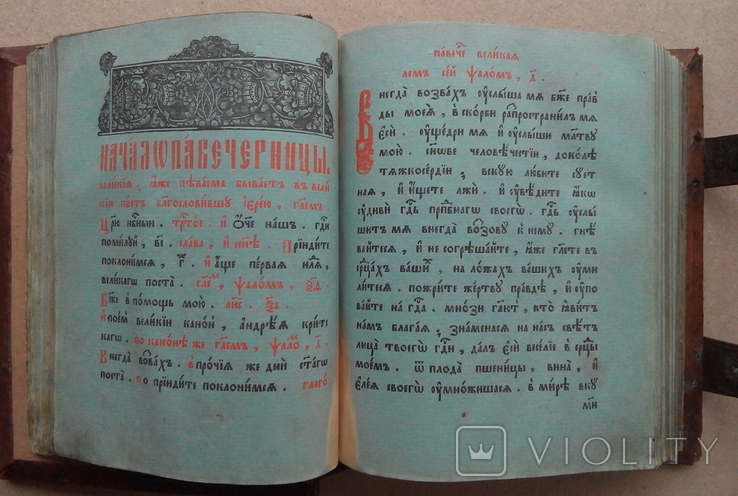 НАЧАЛО ПАВЕЧЕРНИЦЫ.
великїѧ, ꙗже пѣваема бываетъ въ вели
кїи постъ. благословившу їерею, глаголемъ
Царю нбⷭ҇ныи. трⷭ҇тое. и Ѻче нашъ. гдⷭ҇и
помилуй, вı. слава, и нн҃ѣ. Прїидѣте
поклонимсѧ, г҃. и аще первая нлⷧ҇ѧ,
великагѡ поста. гл҃емъ, ѱаломъ, ѯ҃д.
Бж҃е в помощь мою. листъ. р҃а.
и поемъ великїи канонъ, андреѧ крит
скагѡ. по канонѣ же гл҃емъ, ѱалѡ́, д҃.
Внегда воззвахъ. в прочїѧ же дни стагѡ
поста. по прїидѣте поклонимсѧ. глаго
павечерⷨ҇ великая
лемъ сей ѱаломъ, д҃.
Внегда возвахъ ѹслыша мѧ бж҃е прав
ды моеѧ, в скорби распространилъ мѧ
єси. ѹщедри мѧ и ѹслыши мл҃тву
мою. сн҃ове человѣчестїи, доколѣ
тѧжкосердїи, вскую любите сует
ная, и ищете лжи. и ѹвѣдите ꙗкѡ
ѹдиви гд҃ь прпⷣбнаго своегѡ. гд҃ь ѹслы
шитъ мѧ внегда возову к нему. гнѣ
вайтесѧ, и не согрѣшайте, ꙗже гл҃ете въ
срⷣцахъ вашихъ, на ложахъ вашихъ ѹми
литесѧ. пожрите жертву правдѣ, и ѹпо
вайте на гд҃а. мнози гл҃ютъ, кто ꙗвитъ
намъ благая, знаменасѧ на насъ свѣтъ
лица твоегѡ гдⷭ҇и, далъ єси веселїе в срⷣцы
моемъ. ѿ плода пшеницы, вина, и
єлеѧ своегѡ ѹмножишасѧ. в мирѣ вку
пѣ
VIOLITY